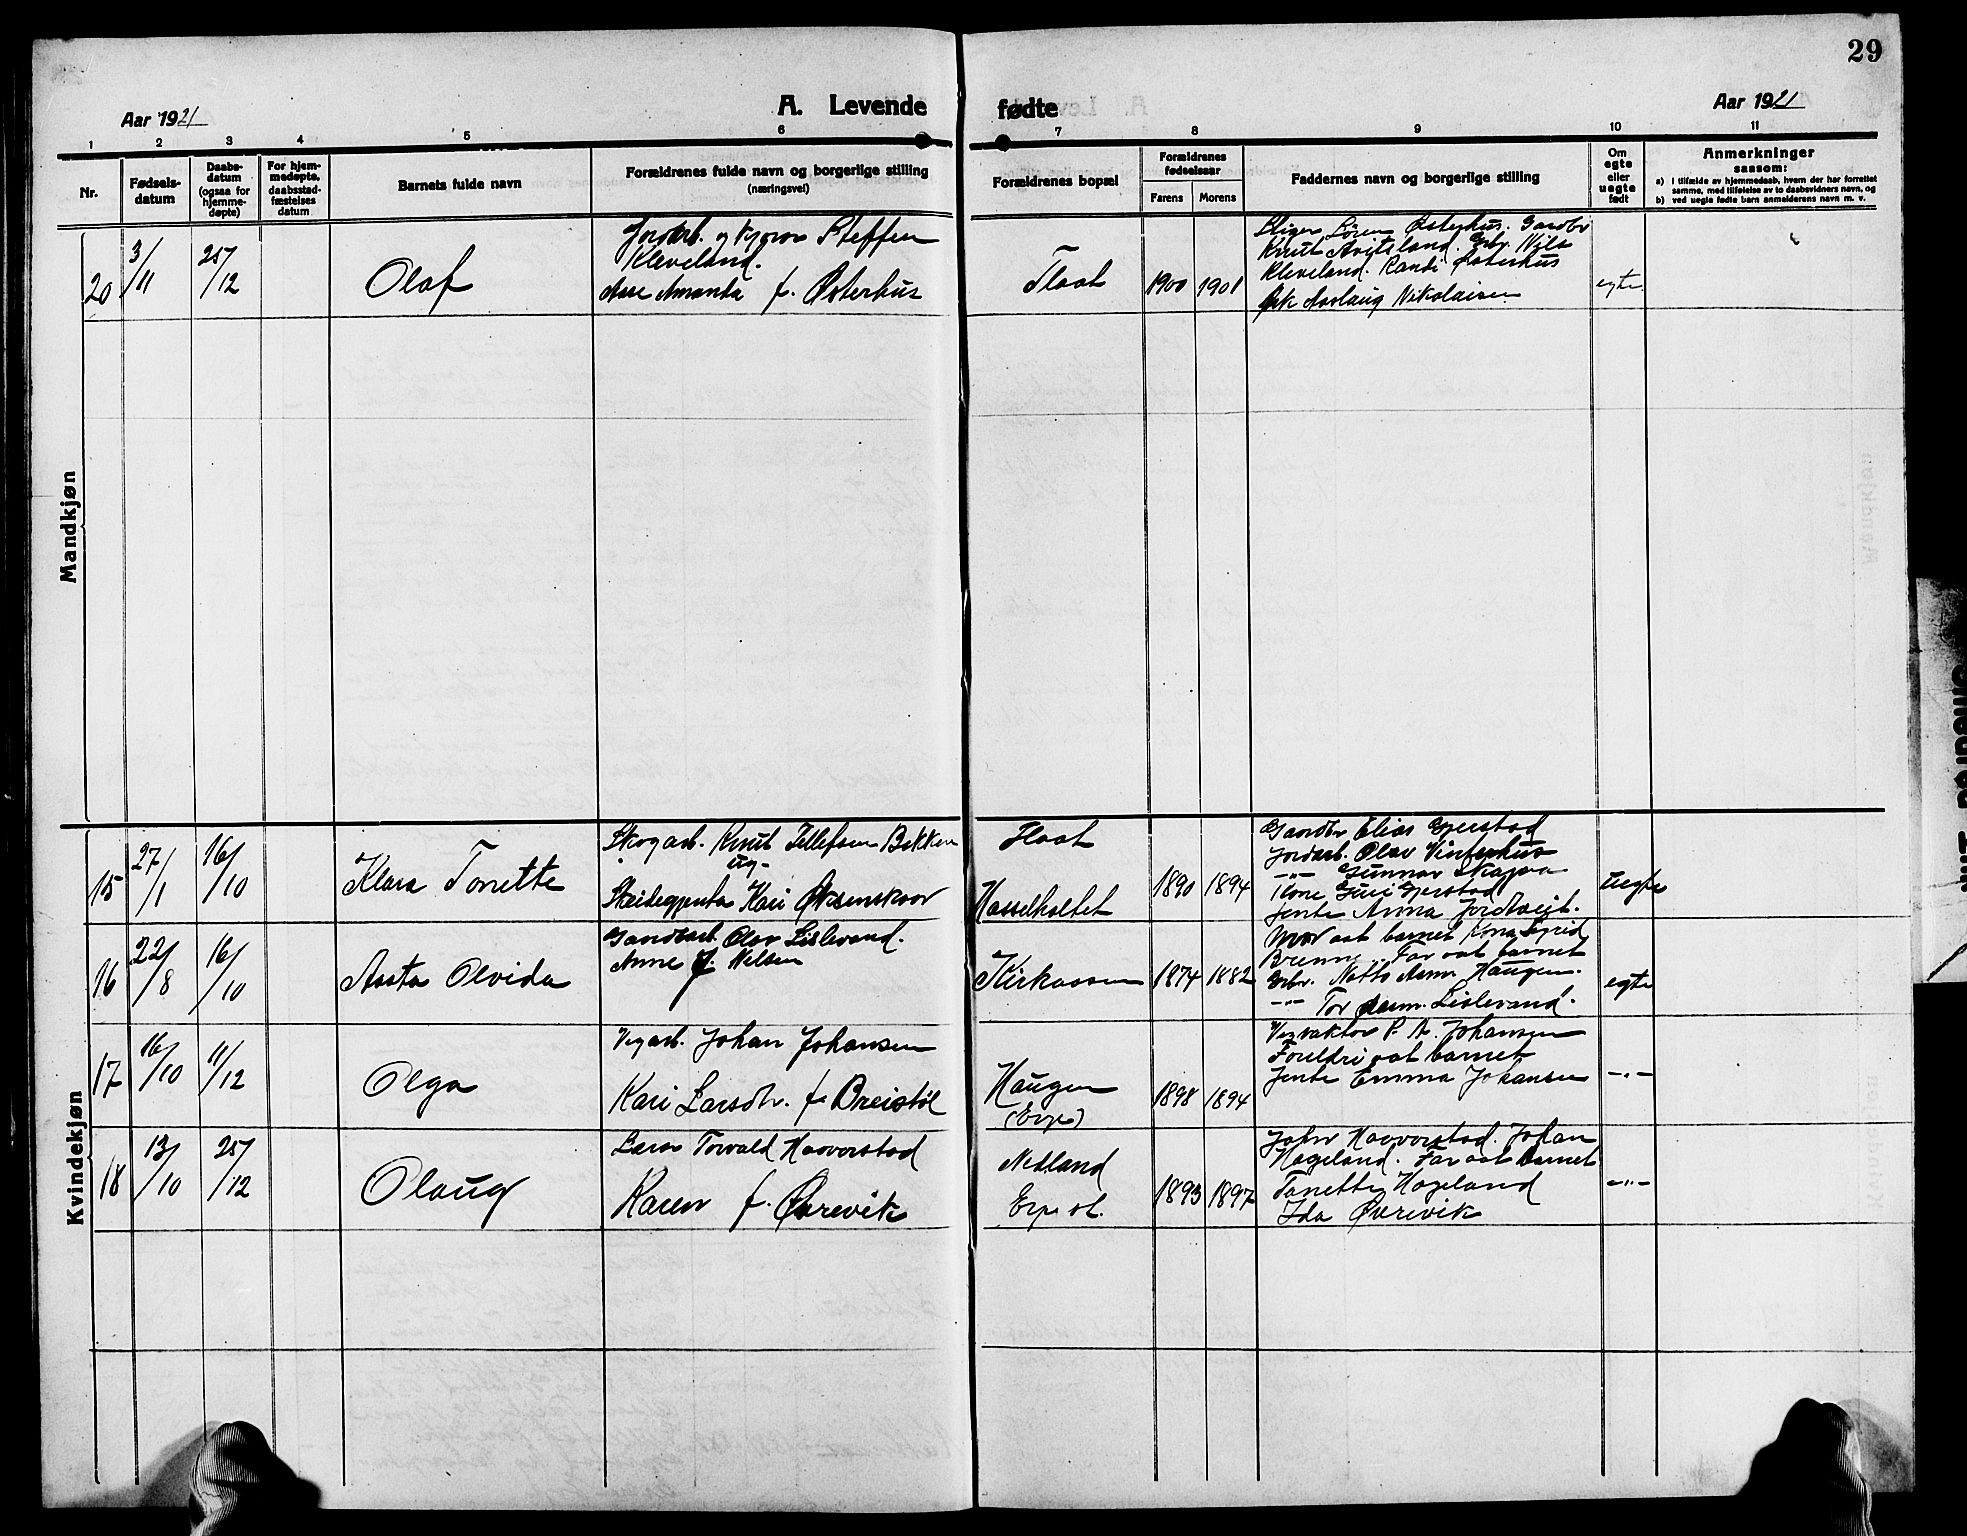 29
Aar 1921
A. Levende
fødte
Aar 1921
1 2 3 4 5 6 7 8 9 10 11
Nr.
Fødsels-
datum
Daabs-
datum
(ogsaa for
hjemme-
døpte)
For hjem-
medøpte,
daabsstad-
fæstelses
datum
Barnets fulde navn
Forældrenes fulde navn og borgerlige stilling
(næringsvei)
Forældrenes bopæl
Forældrenes
fødselsaar
Farens Morens
Faddernes navn og borgerlige stilling
Om
egte
eller
uegte
født
Anmerkninger
saasom:
a) i tilfælde av hjemmedaab, hvem der har forrettet
samme, med tilføielse av to daabsvidners navn, og
b) ved uegte fødte barn anmelderens navn m. v.
Mandkjøn
20
3/11
25/12
Olaf
Jordarb. og Steffen
Kleveland.
Aase Amanda f. Østerhus
Flaat
1900 1901
Søren Østerhus. Gaardbr
Knut Avitsland. Gbr. Nils
Kleveland. Randi Østerhus
Aaslaug Nikolaisen
egte
Kvindekjøn
15
27/1
16/10
Klara Tonette
Skogarb. Knut Tellefsen Bakken
og
Kari Øksenskaar
Flaat
Hasselholtet
1890 1894
Gaardbr Elias Gjerstad
Jordarb. Olav Vinterhus
-"- Gunnar Skajaa
Kone Guri Gjerstad
Jente Anna
uegte
16
22/8
16/10
Aasta Olvida
Gaardarb. Olav Lislevand.
Anne f. Nelsen
Kirkaasen
1874 1882
Mor aat barnet Kona Sigrid
Brenne. Far aat barnet
Gbr. Notto Haugen.
-"- Tor Lislevand.
egte
17
16/10
11/12
Olga
Vegarb. Johan Johansen
Kari Larsdtr. f. Breistøl
Haugen
(Evje)
1898 1894
Vegvaktar P. A. Johansen
Foreldri aat barnet
Jente Emma Johansen
-"-
18
13/10
25/12
Olaug
Lærar Torvald Haaverstad
Karen f. Øvrevik
Netland
Evje st.
1893 1897
John Haaverstad. Johan
Hageland. Far aat barnet
Tonette Hageland
Ida Øvrevik
-"-